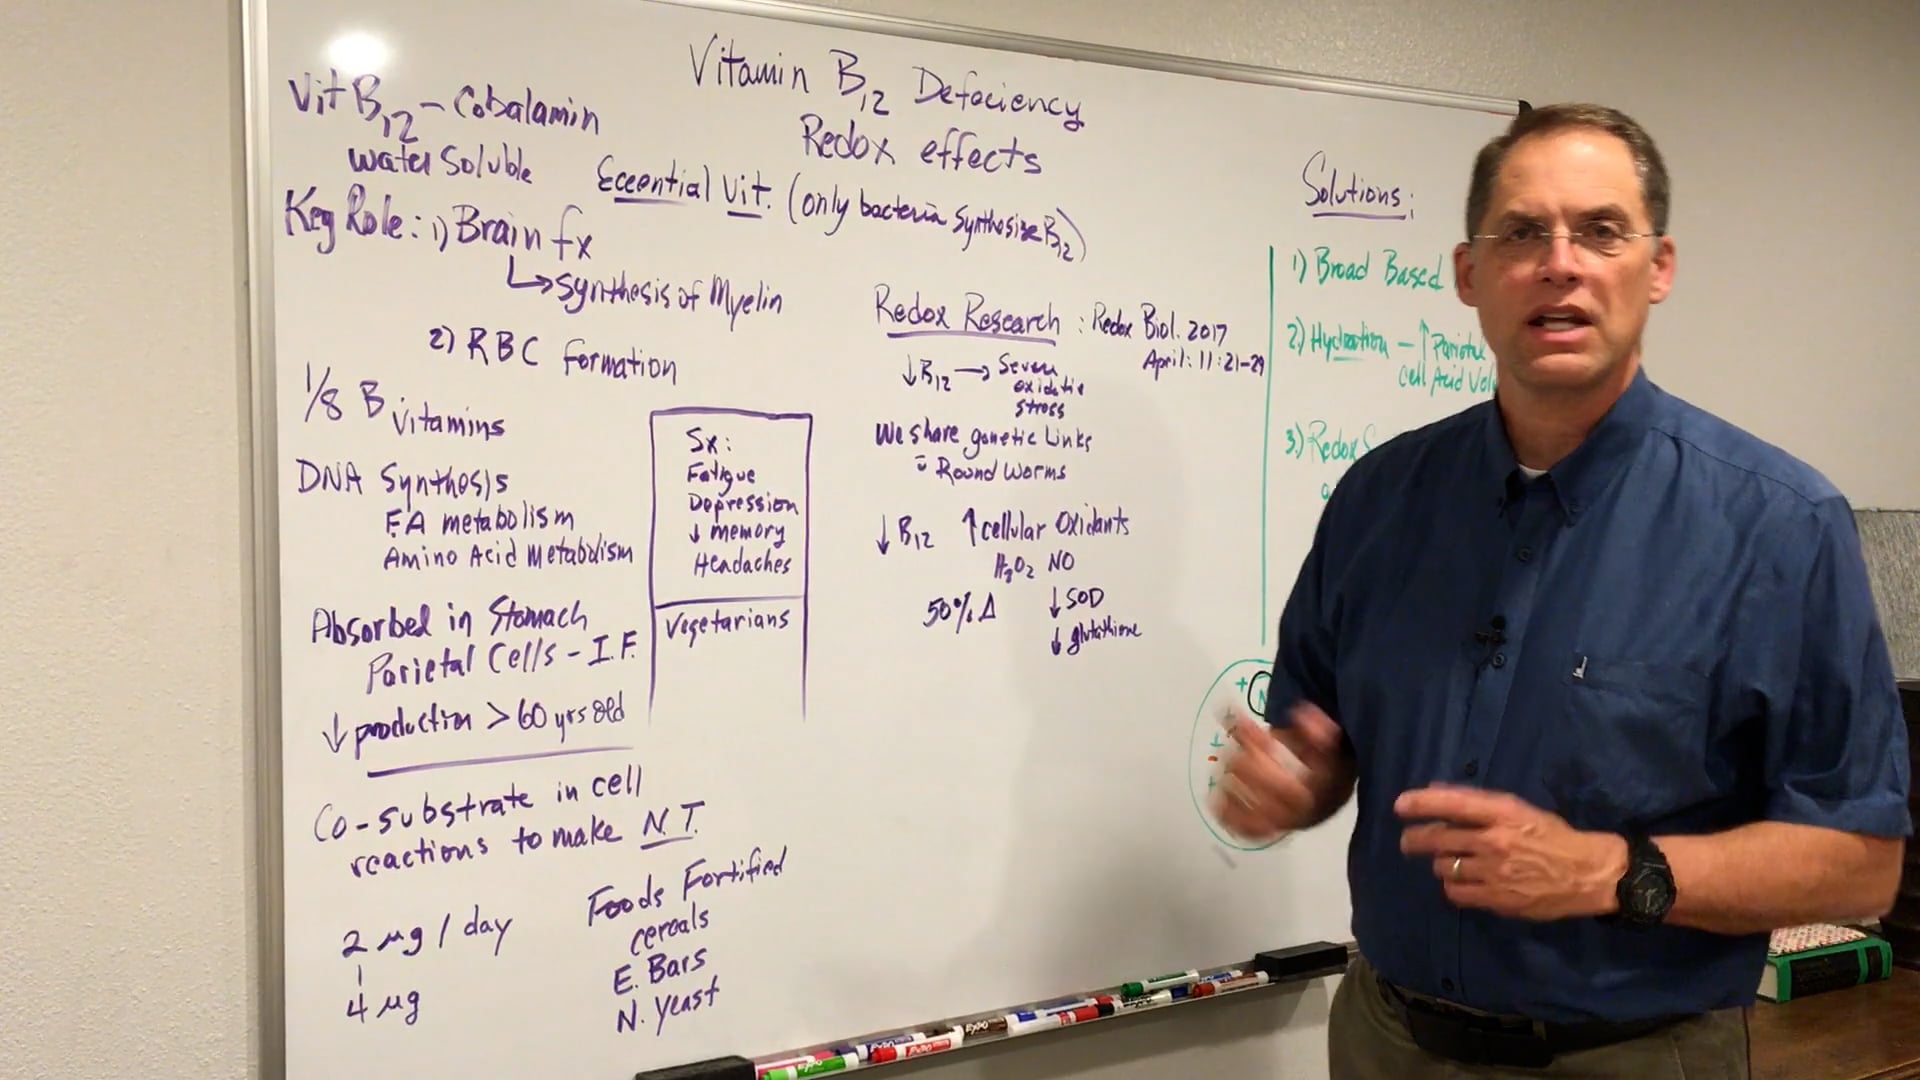 Vitamin B12 Defeciency
Redox effects
Vit B12 - Cobalamin
water Soluble
Eccential Vit. (only bacteria Synthosize B12)
Key Role: 1) Brain fx
↳ Synthesis of Myelin
2) RBC Formation
1/8 B Vitamins
DNA Synthesis
F.A metabolism
Amino Acid Metabolism
Absorbed in Stomach
Parietal Cells - I.F.
↓ production > 60 yrs old
Co-substrate in cell
reactions to make N.T.
2 µg / day
4 µg
Foods Fortified
cereals
E. Bars
N. Yeast
Sx:
Fatigue
Depression
↓ memory
Headaches
Vegetarians
Redox Research : Redox Biol. 2017
April: 11:21-29
↓ B12 → Severe
oxidative
stress
We share genetic Links
c̄ Round Worms
↓ B12 ↑ cellular Oxidants
H2O2 NO
50% Δ ↓ SOD
↓ glutathione
Solutions:
1) Broad Based
2) Hydration - ↑ Parietal
Cell Acid
3.) Redox
EXPO
EXPO